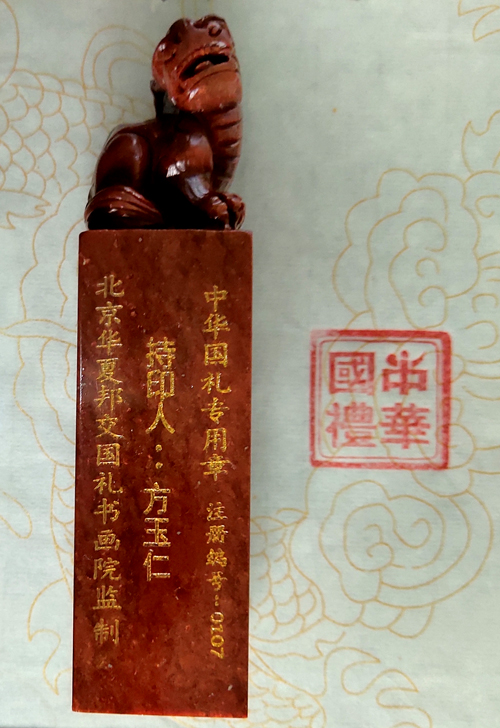 中华国礼专用章 注册编号：0107
持印人：方玉仁
北京华夏邦交国礼书画院监制
中華
國禮